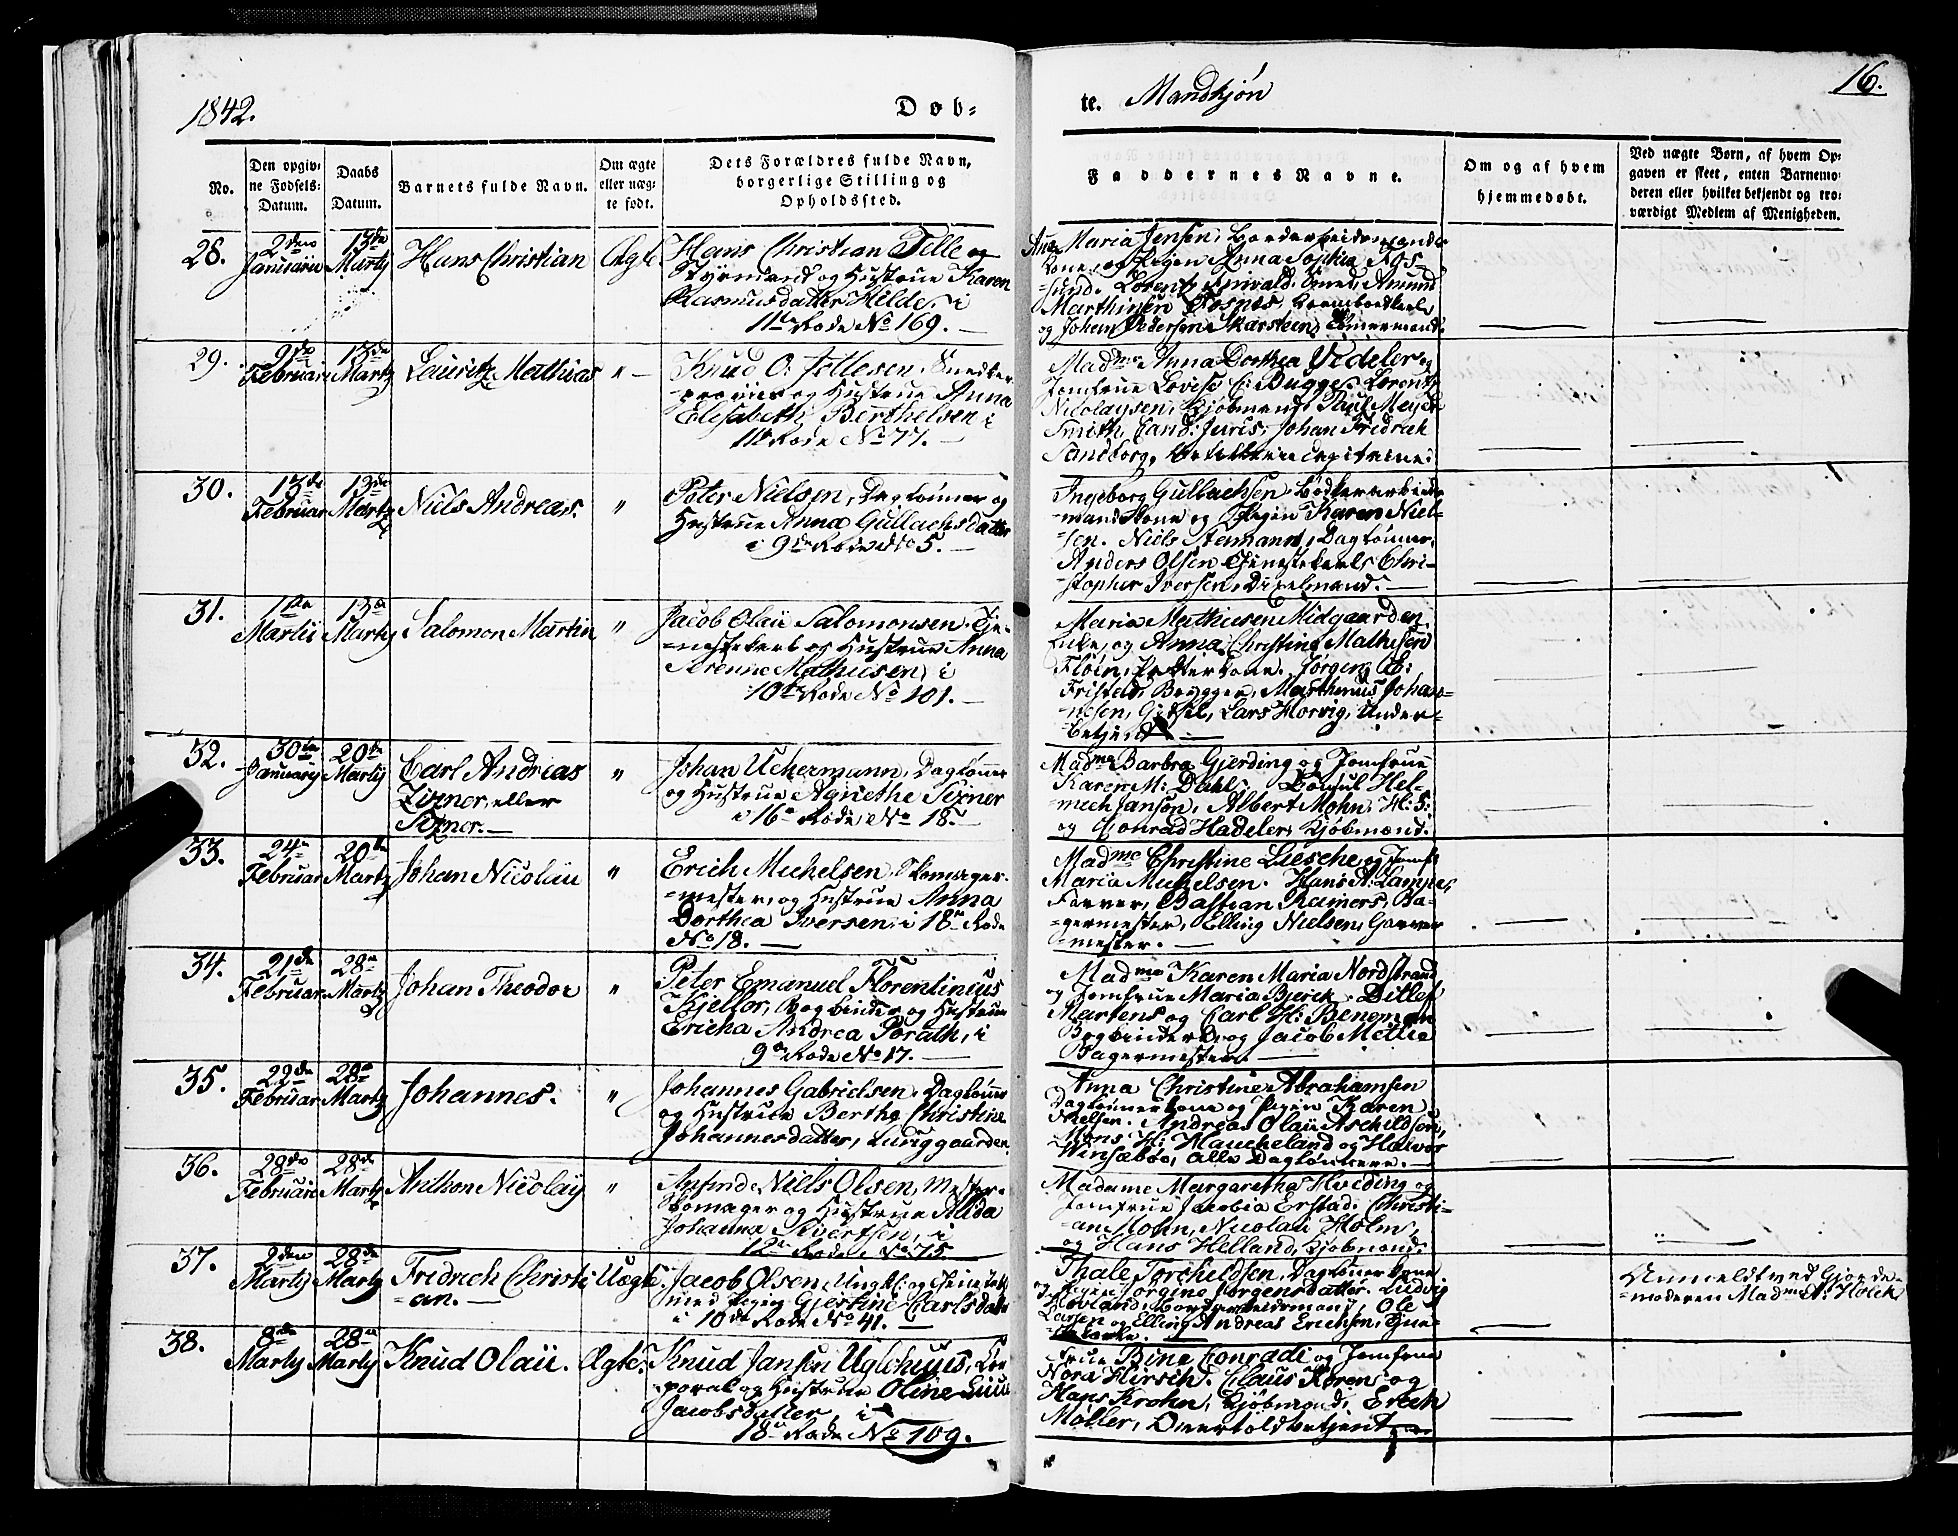 1842.
Døb-
te. Mandkjøn
16.
No.
Den opgiv-
ne Fødsels-
Datum.
Daabs
Datum.
Barnets fulde Navn.
Om ægte
eller uæg-
te født.
Dets Forældres fulde Navn,
borgerlige Stilling og
Opholdssted.
Faddernes Navne.
Om og af hvem
hjemmedøbt.
Ved uægte Børn, af hvem Op-
gaven er skeet, enten Barnemo-
deren eller hvilket bekjendt og tro-
værdigt Medlem af Menigheden.
28.
2den
Januarii
13de
Martj
Hans Christian
Ægte
Hans Christian Tille og
Styrmand og Hustrue Karen
Rasmusdatter Hilde, i
11te Rode No 169.
Ane Maria Jensen, Bordarbeidsmands
Kone, og Pigen Anna Sophia Fos-
=sund. Lorentz Smed, Amund
Marthinsen Fosnes,
og Johan Pedersen Skarsteen, Tømermænd.
29.
9de
Februari
13de
Martz
Lauritz Mathias
"
Knud O: Jellesen, Snedker
og Hustrue Anna
Elisabeth Berthelsen i
11te Rode No 77.
Madme Anna Dorthea Vedeler og
Jomfrue Lovise C: Bugge, Lorentz
Nicolaysen, Kjøbmand, Paul Meyer
Smith, Cand: Juris, Johan Fridrich
Sandborg,
30.
13de
Februar
13de
Martz
Niels Andreas.
"
Peter Nielsen, Daglønner og
Hustrue Anna Gullachsdatter
i 9de Rode No 5.
Ingeborg Gullachsen, Bødkerarbeids-
=mandskone og Pigen Karen Niel-
=sen. Niels Stermann, Daglønner,
Anders Olsen Tjenestekarl, Chri-
=stopher Iversen,
31.
1ste
Martii
13de
Martz
Salomon Martin
"
Jacob Olaii Salomonsen, Tje-
=nestekarl og Hustrue Anna
Serenne Mathiesen, i
10de Rode No 101.
Maria Mathiesen Midgaarden,
Enke, og Anna Christine Mathisen
Fløin, Kone, Jørgen E:
Fristad, Brygger, Marthinus Johan-
=nesen, Gjesel, Lars Horvig, Under-
=betjent
32.
30te
Januarij
20de
Martij
Carl Andreas
Zizner, eller
Sizner.
"
Johan Uchermann, Dagløner
og Hustrue Agnethe Sizner
i 16de Rode, No 18.
Madme Barbra Gjerding og Jomfrue
Karen M: Dahl, Konsul Hel-
=mich Janson, Albert Mohn, H: S:
og Conrad Hadeler, Kjøbmænd.
33.
24de
Februar
20de
Martz
Johan Nicolaii
"
Erich Michelsen, Skomager-
=mester, og Hustrue Anna
Dorthea Iversen, i 18de Rode
No 18.
Madme Christine Liesche, og Jomf:
Maria Michelsen. Hans A: Lampe,
Farver, Bastian Reimers, Ba-
=germester, Elling Nielsen, Garver
=mester.
34.
21de
Februar
28de
Martz
Johan Theodor
"
Peter Emanuel Florentinius
Kjellor, Bogbinder og Hustrue
Ericha Andrea Porath, i
9de Rode No 17.
Madme Karen Maria Nordstrand
og Jomfrue Maria Bjerck, Ditlef
Martens og Carl H: Beneman
Bogbindere, og Jacob Mettie
Bagermester.
35.
22de
Februar
28de
Martz
Johannes.
"
Johannes Gabrielsen, Dagløner
og Hustrue Berthe Christine
Johannesdatter,
Anna Christine Abrahamsen
Dagløønnerkone og Pigen Karen
Nielsen. Andreas Olaii Aschildsen,
Mons H: Haucheland og Halvor
Winsæbøe, alle Dagløønnere.
36.
28de
Februarii
28de
Martz
Anthon Nicolay
"
Anfind Niels Olsen, Mester-
=skomager og Hustrue Alida
Johanna Sivertsen, i
12de Rode, No 75
Madame Margaretha Hviding og
Jomfrue Jacobia Erstad. Christi-
=an Mohn, Nicolai Holm,
og Hans Helland, Kjøbmænd.
37.
2den
Martij
28de
Martz
Fridrich Christi-
=an.
Uægte.
Jacob Olsen, Ungkl: og Tjeneste
med Pigen Gjertine Carlsdatter
i 10de Rode No 41.
Thale Torchildsen, Dagløner Kone
og Pigen Jorgine Jørgensdatter. Ludvig
Hovland, Bordarbeidsmand, Ole
Larsen og Elling Andreas Erichsen, Tjene-
Anmeldt ved Gjorde-
=moderen Madme A: Holck
38.
8de
Martij
28de
Martij
Knud Olaii.
Ægte.
Knud Jansen Uglehuus, Cor-
poral og Hustrue Oline
Jacobsdatter, i
18de Rode No 109.
Frue Bine Conradi og Jomfrue
Nora Hirsch. Claus Koren og
Hans Krohn, Kjøbmænd, Erich
Møller, Overtoldbetjent